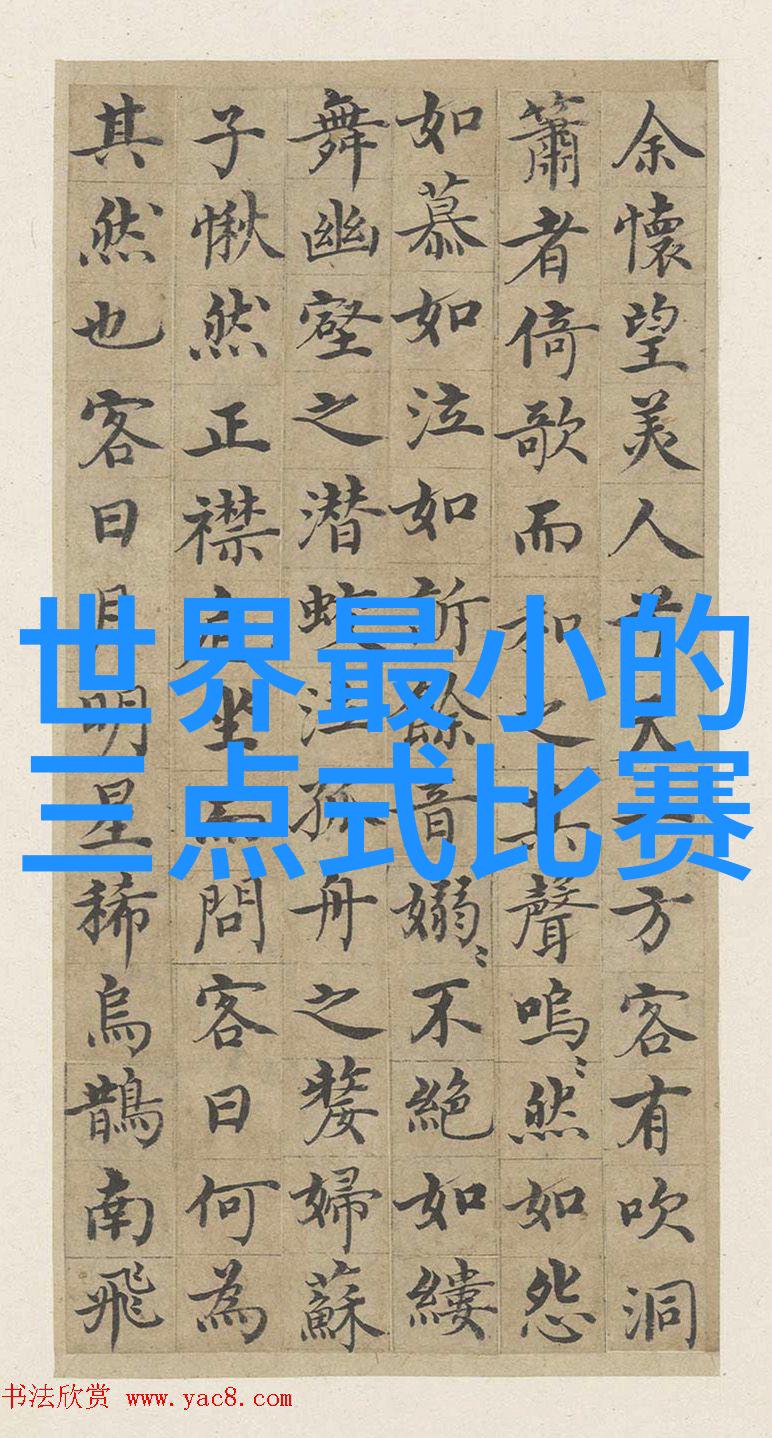 余懷望美人兮天一方客有吹洞
簫者倚歌而和之其聲嗚〻然如怨
如慕如泣如訴餘音嫋〻不絕如縷
舞幽壑之潜蛟泣孤舟之嫠婦蘇
子愀然正襟危坐而問客曰何為
其然也客曰月明星稀烏鵲南飛
世界最小的
三点式比赛
书法欣赏 www.yac8.com